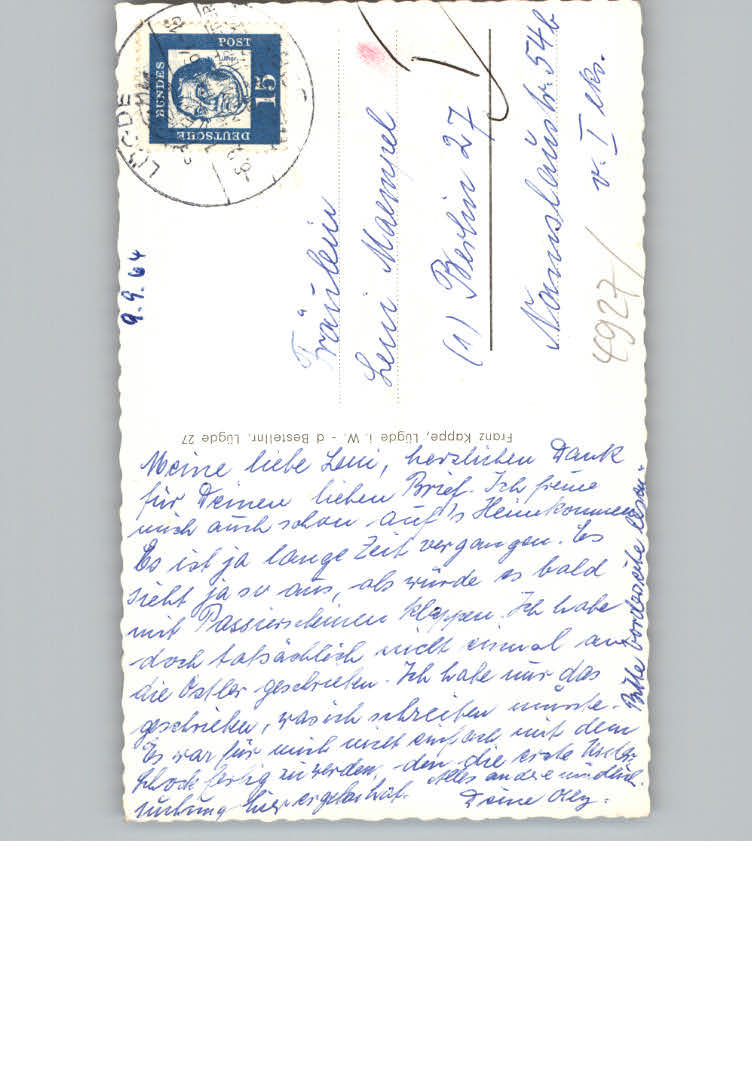 Meine liebe Leni, herzlichen Dank
für Deinen lieben Brief. Ich freue
mich auch schon auf's Heimkommen
Es ist ja lange Zeit vergangen. Es
sieht ja so aus, als würde es bald
mit Passierscheinen klappen. Ich habe
doch tatsächlich nicht einmal an
die Ostler geschrieben. Ich habe nur das
geschrieben, was ich schreiben musste.
Es war für mich nicht einfach mit dem
Schock fertig zu werden, den die erste Unter-
suchung hier ergeben hat. Alles andere mündlich.
Deine
Bitte Vorderseite lesen
Franz Kappe, Lügde i. W. - d Bestellnr. Lügde 27
9.9.64
Fräulein
Leni Maempel
(1) Berlin 27
Namslaustr. 54b
v. I
4927/
DEUTSCHE
BUNDES
POST
15
LÜGDE